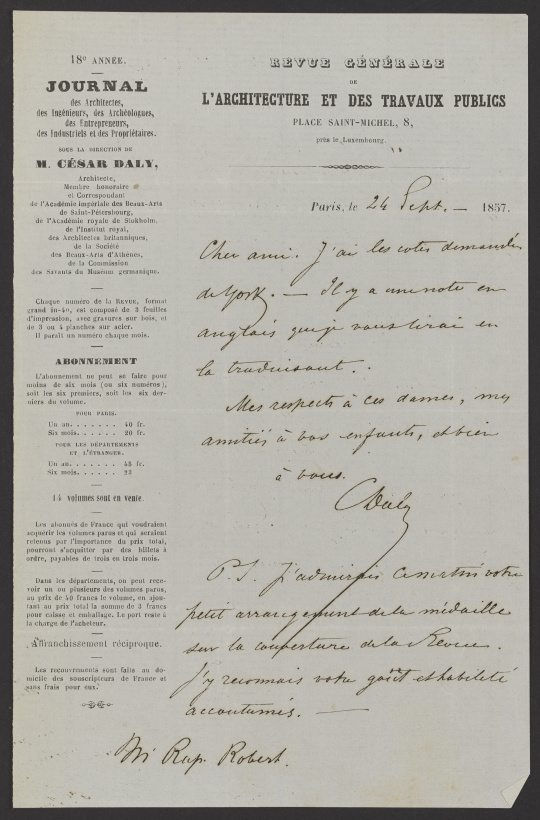 18e ANNÉE.
JOURNAL
des Architectes,
des Ingénieurs, des Archéologues,
des Entrepreneurs,
des Industriels et des Propriétaires.
SOUS LA DIRECTION DE
M. CÉSAR DALY,
Architecte,
Membre honoraire
et Correspondant
de l'Académie impériale des Beaux-Arts
de Saint-Pétersbourg,
de l'Académie royale de Stokholm,
de l'Institut royal,
des Architectes britanniques,
de la Société
des Beaux-Arts d'Athènes,
de la Commission
des Savants du Muséum germanique.
Chaque numéro de la REVUE, format
grand in-4o, est composé de 3 feuilles
d'impression, avec gravures sur bois, et
de 3 ou 4 planches sur acier.
Il paraît un numéro chaque mois.
ABONNEMENT
L'abonnement ne peut se faire pour
moins de six mois (ou six numéros),
soit les six premiers, soit les six der-
niers du volume.
POUR PARIS.
Un an. . . . . . . 40 fr.
Six mois. . . . . . 20 fr.
POUR LES DÉPARTEMENTS
ET L'ÉTRANGER.
Un an. . . . . . . 45 fr.
Six mois. . . . . . 23
14 volumes sont en vente.
Les abonnés de France qui voudraient
acquérir les volumes parus et qui seraient
retenus par l'importance du prix total,
pourront s'acquitter par des billets à
ordre, payables de trois en trois mois.
Dans les départements, on peut rece-
voir un ou plusieurs des volumes parus,
au prix de 40 francs le volume, en ajou-
tant au prix total la somme de 3 francs
pour caisse et emballage. Le port reste à
la charge de l'acheteur.
Affranchissement réciproque.
Les recouvrements sont faits au do-
micile des souscripteurs de France et
sans frais pour eux.
REVUE GÉNÉRALE
DE
L'ARCHITECTURE ET DES TRAVAUX PUBLICS
PLACE SAINT-MICHEL, 8,
près le Luxembourg.
Paris, le 24 Sept. — 1857.
Cher ami. J'ai les cotes demandées
de York. — Il y a une note en
anglais que je vous lirai en
la traduisant.
Mes respects à ces dames, mes
amitiés à vos enfants, et bien
à vous.
CDaly
P.S. J'admirais ce matin votre
petit arrangement de la médaille
sur la couverture de la Revue.
J'y reconnais votre goût et habileté
accoutumés. —
Mr Rup. Robert.